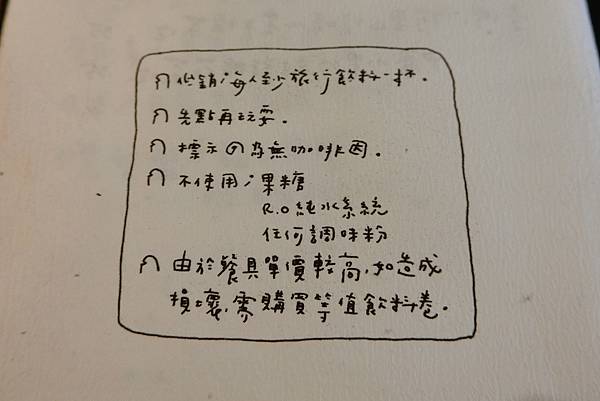 低銷:每人至少旅行飲料一杯。
先點再玩耍。
標示の為無咖啡因。
不使用:果糖
R.O純水系統
任何調味粉
由於餐具單價較高,如造成
損壞,需購買等值飲料卷。